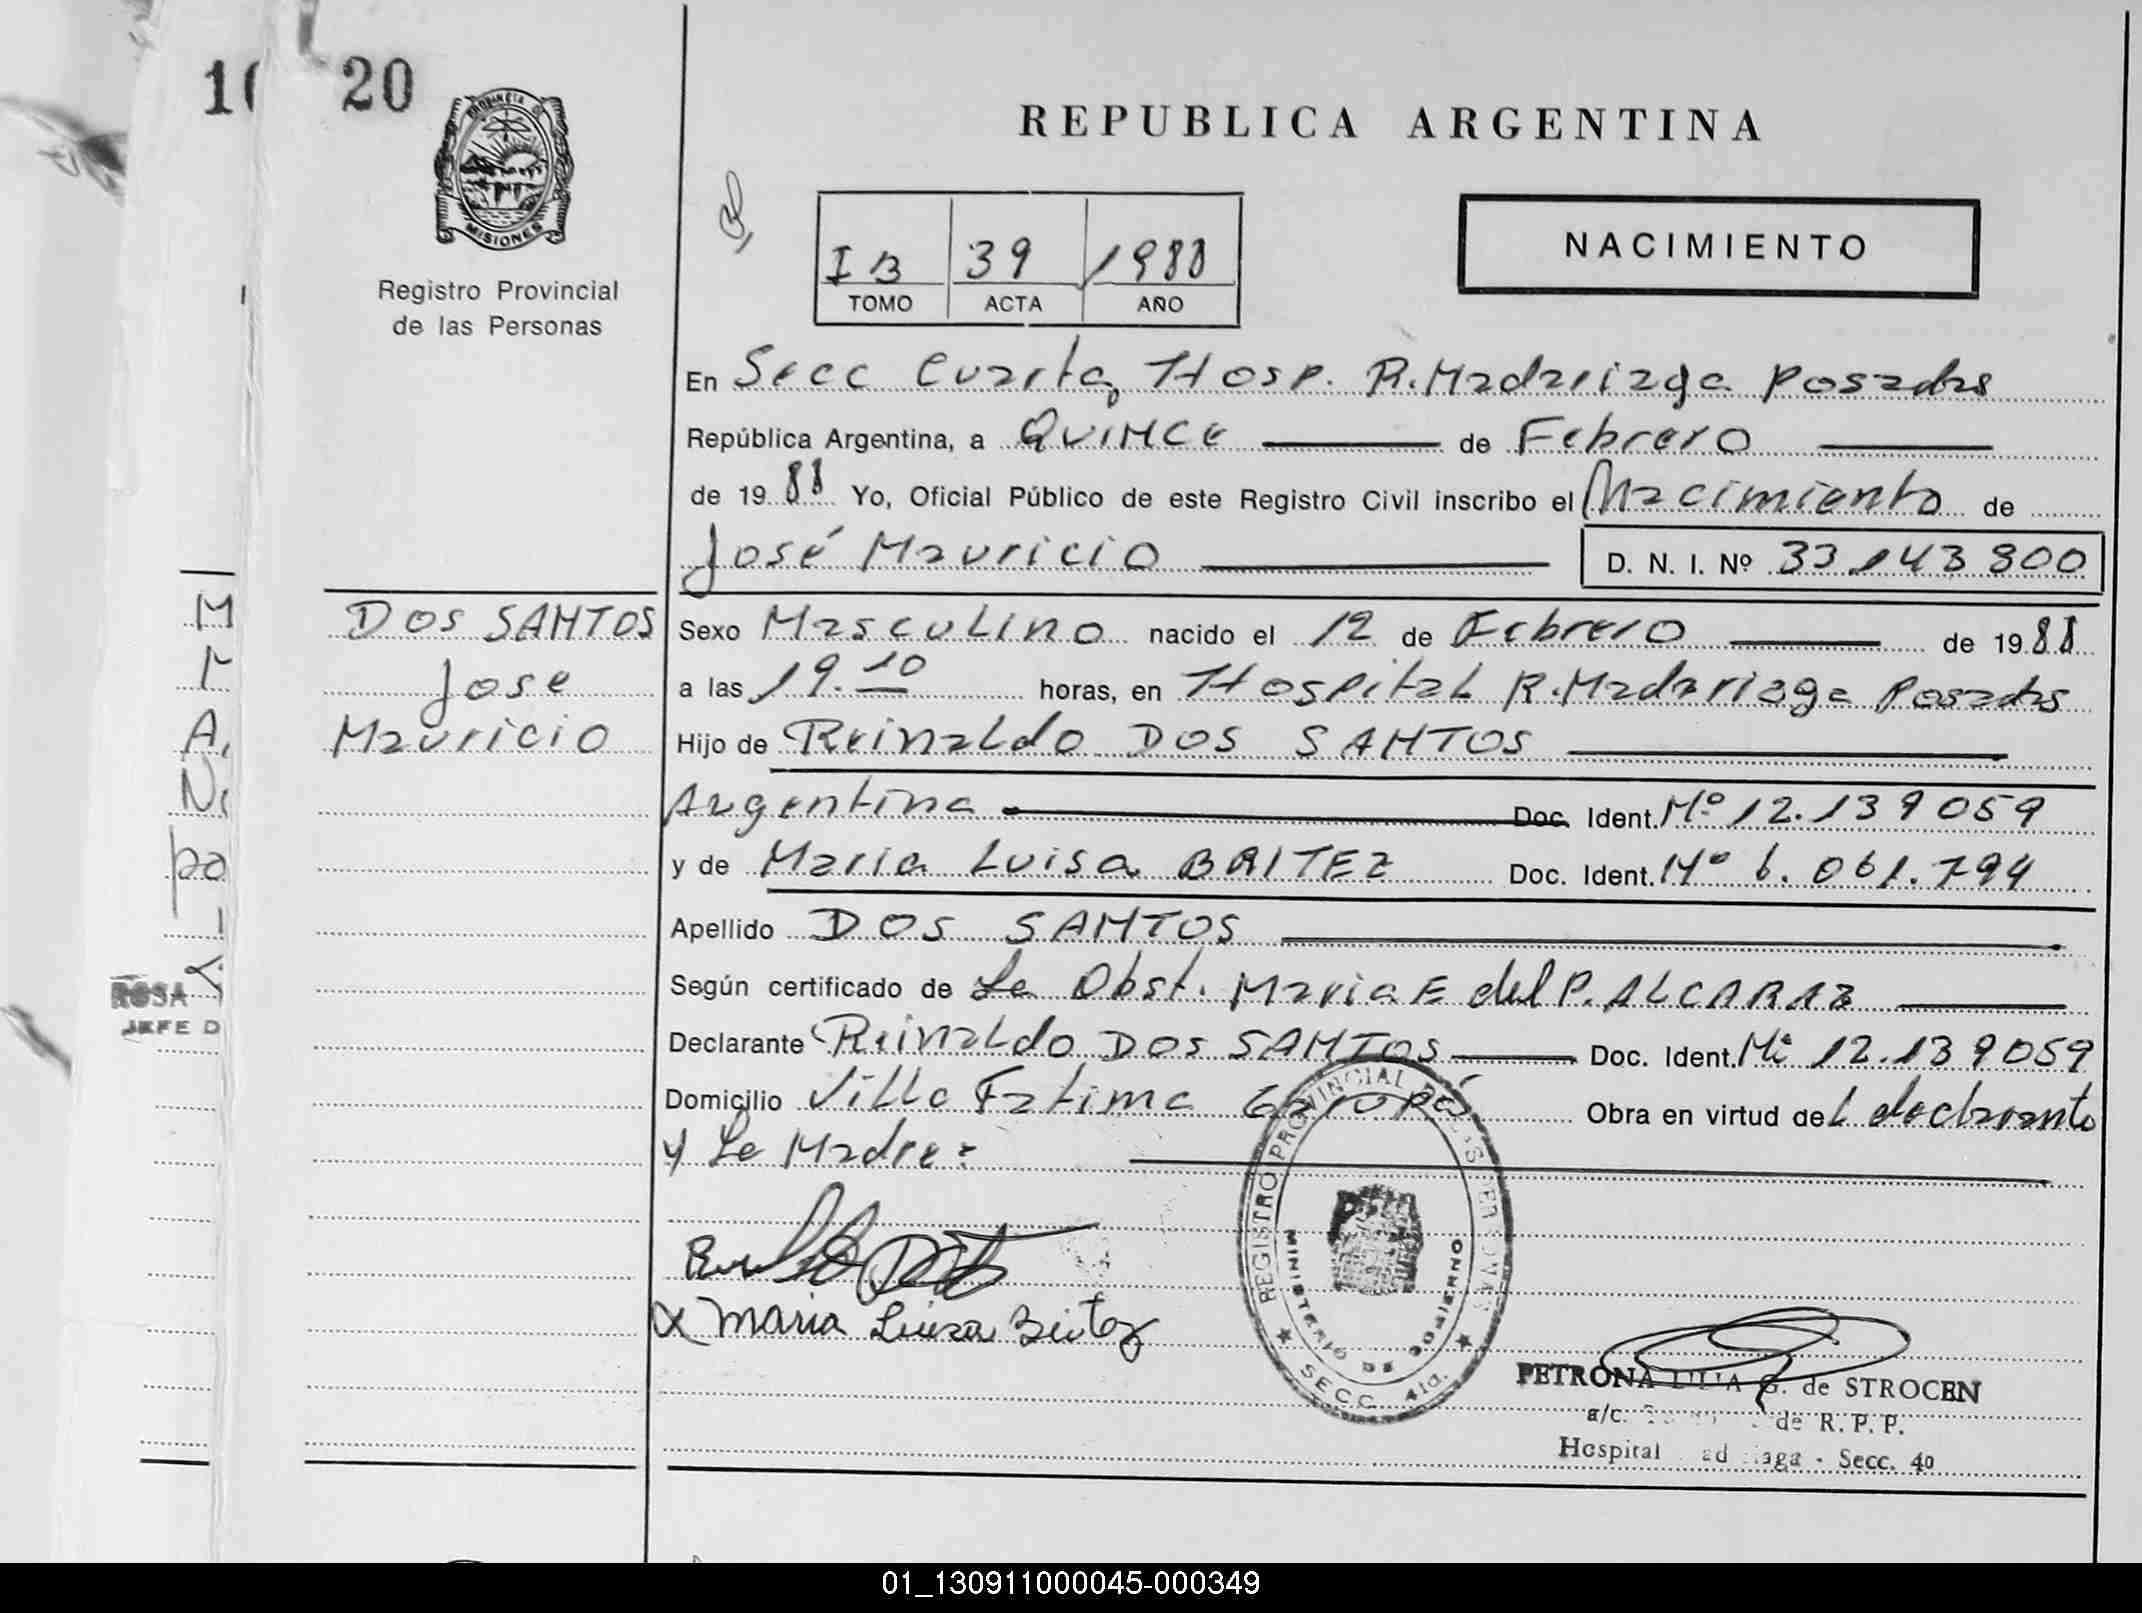 10
20
PROVINCIA DE
MISIONES
Registro Provincial
de las Personas
REPUBLICA ARGENTINA
I B 39 1988
TOMO ACTA AÑO
NACIMIENTO
En Secc Cuarta, Hosp. R. Madariaga Posadas
República Argentina, a Quince de Febrero
de 1988 Yo, Oficial Público de este Registro Civil inscribo el Nacimiento de
José Mauricio D. N. I. Nº 33.143.800
DOS SANTOS
Jose
Mauricio
Sexo Masculino nacido el 12 de Febrero de 1988
a las 19.10 horas, en Hospital R. Madariaga Posadas
Hijo de Reinaldo DOS SANTOS
Argentina Doc. Ident. Nº 12.139059
y de Maria Luisa BRITEZ Doc. Ident. Nº 6.061.794
Apellido DOS SANTOS
Según certificado de La Obst. Maria E del P. ALCARAZ
Declarante Reinaldo DOS SANTOS Doc. Ident. Nº 12.139059
Domicilio Villa Fatima Garupá Obra en virtud del declarante
y La Madre:
Maria Luisa Britez
REGISTRO PROVINCIAL DE LAS PERSONAS
MINISTERIO DE GOBIERNO
SECC. 4ta.
PETRONA LILIA G. de STROCEN
a/c. de R. P. P.
Hospital - Secc. 4º
ROSA
JEFE D
01_130911000045-000349